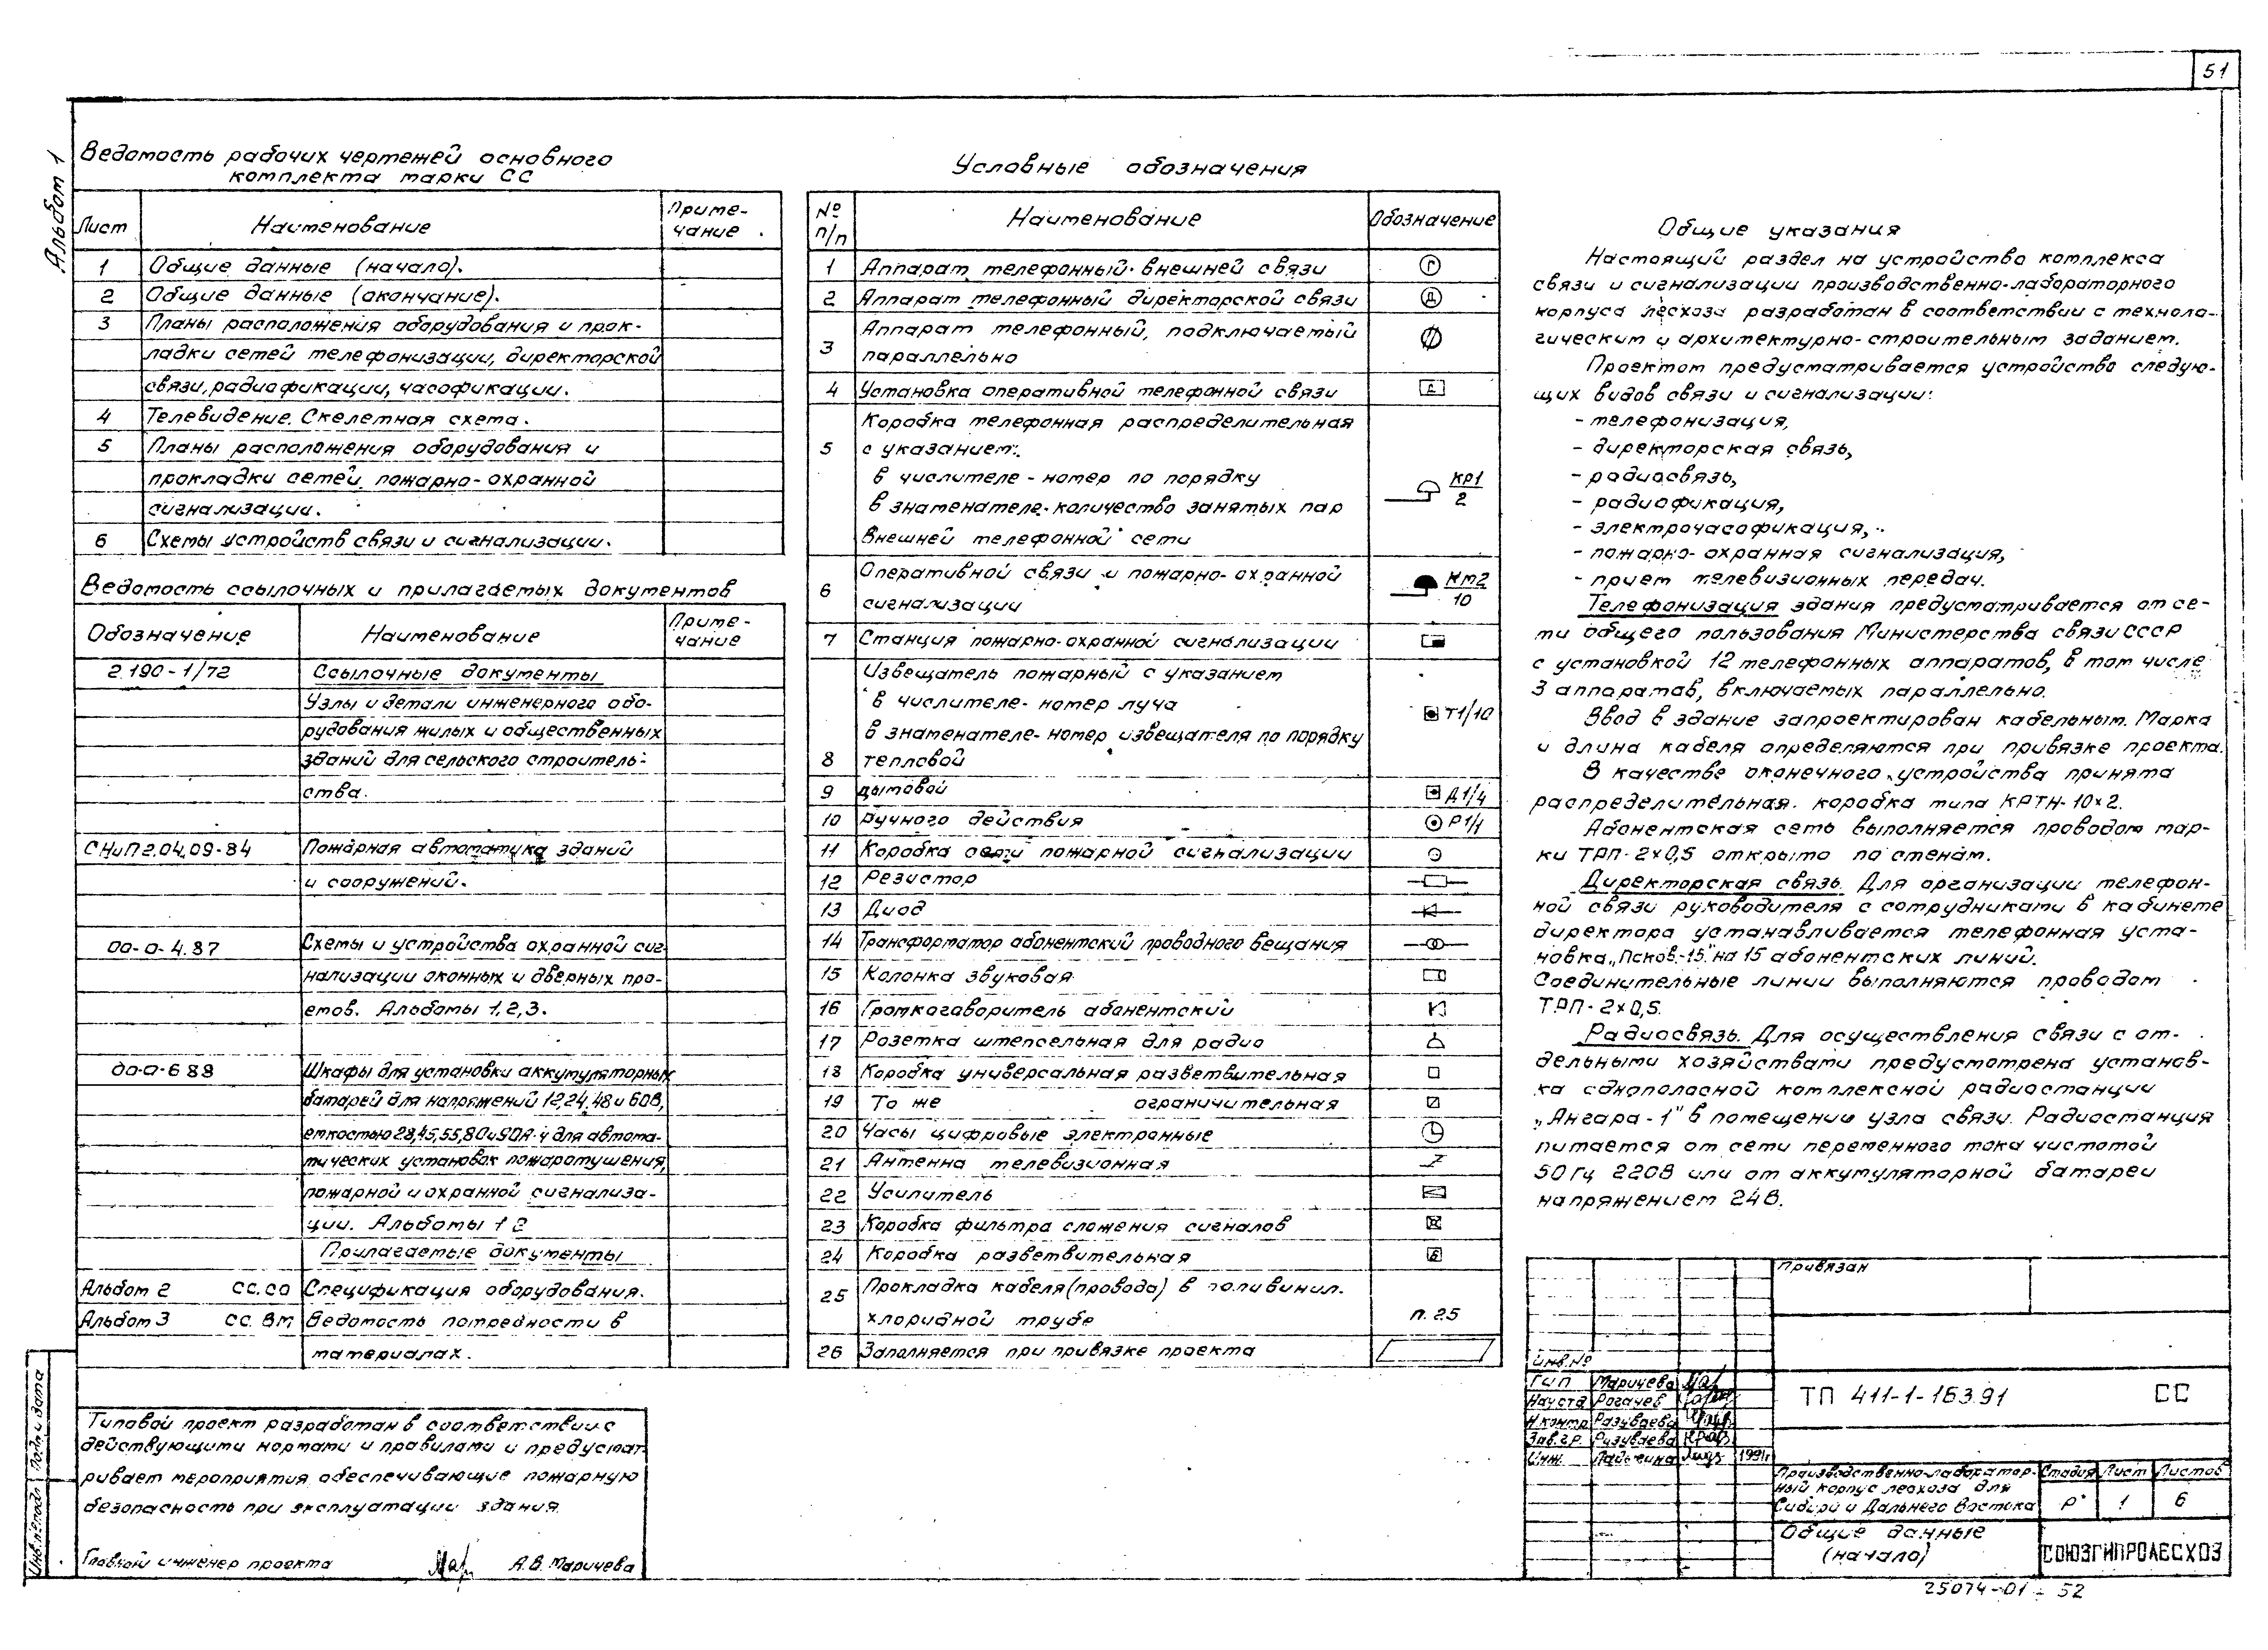 51
Альбом 1
Ведомость рабочих чертежей основного
комплекта марки СС
Лист Наименование Приме-
чание
1 Общие данные (начало).
2 Общие данные (окончание).
3 Планы расположения оборудования и прок-
ладки сетей телефонизации, директорской
связи, радиофикации, часофикации.
4 Телевидение. Скелетная схема.
5 Планы расположения оборудования и
прокладки сетей пожарно-охранной
сигнализации.
6 Схемы устройств связи и сигнализации.
Ведомость ссылочных и прилагаемых документов
Обозначение Наименование Приме-
чание
2.190-1/72 Ссылочные документы
Узлы и детали инженерного обо-
рудования жилых и общественных
зданий для сельского строитель-
ства.
СНиП 2.04.09-84 Пожарная автоматика зданий
и сооружений.
оа-а-4.87 Схемы и устройства охранной сиг-
нализации оконных и дверных про-
емов. Альбомы 1,2,3.
оа-а-6 88 Шкафы для установки аккумуляторных
батарей для напряжений 12,24,48 и 60В,
емкостью 28,45,55,80 и 90А·ч для автома-
тических установок пожаротушения,
пожарной и охранной сигнализа-
ции. Альбомы 1 2
Прилагаемые документы
Альбом 2 СС.СО Спецификация оборудования.
Альбом 3 СС.ВМ Ведомость потребности в
материалах.
Типовой проект разработан в соответствии с
действующими нормами и правилами и предусмат-
ривает мероприятия обеспечивающие пожарную
безопасность при эксплуатации здания
Главный инженер проекта А.В. Маричева
Условные обозначения
№
п/п Наименование Обозначение
1 Аппарат телефонный внешней связи
2 Аппарат телефонный директорской связи Д
3 Аппарат телефонный, подключаемый
параллельно
4 Установка оперативной телефонной связи Д
Коробка телефонная распределительная
5 с указанием:
в числителе - номер по порядку КР1
в знаменателе - количество занятых пар 2
Внешней телефонной сети
6 Оперативной связи и пожарно-охранной Км2
сигнализации 10
7 Станция пожарно-охранной сигнализации
Извещатель пожарный с указанием
в числителе - номер луча Т1/10
в знаменателе - номер извещателя по порядку
8 тепловой
9 дымовой Д1/4
10 Ручного действия Р1/1
11 Коробка сети пожарной сигнализации
12 Резистор
13 Диод
14 Трансформатор абонентский проводного вещания
15 Колонка звуковая
16 Громкоговоритель абонентский
17 Розетка штепсельная для радио
18 Коробка универсальная разветвительная
19 То же ограничительная
20 Часы цифровые электронные
21 Антенна телевизионная
22 Усилитель
23 Коробка фильтра сложения сигналов
24 Коробка разветвительная
25 Прокладка кабеля (провода) в поливинил-
хлоридной трубе п.25
26 Заполняется при привязке проекта
Общие указания
Настоящий раздел на устройство комплекса
связи и сигнализации производственно-лабораторного
корпуса лесхоза разработан в соответствии с техноло-
гическим и архитектурно-строительным заданием.
Проектом предусматривается устройство следую-
щих видов связи и сигнализации:
- телефонизация,
- директорская связь,
- радиосвязь,
- радиофикация,
- электрочасофикация,
- пожарно-охранная сигнализация,
- прием телевизионных передач.
Телефонизация здания предусматривается от се-
ти общего пользования Министерства связи СССР
с установкой 12 телефонных аппаратов, в том числе
3 аппаратов, включаемых параллельно.
Ввод в здание запроектирован кабельным. Марка
и длина кабеля определяются при привязке проекта.
В качестве оконечного устройства принята
распределительная коробка типа КРТН-10×2.
Абонентская сеть выполняется проводом мар-
ки ТРП-2×0,5 открыто по стенам.
Директорская связь. Для организации телефон-
ной связи руководителя с сотрудниками в кабинете
директора устанавливается телефонная уста-
новка „Псков-15" на 15 абонентских линий.
Соединительные линии выполняются проводом
ТРП-2×0,5.
Радиосвязь. Для осуществления связи с от-
дельными хозяйствами предусмотрена установ-
ка однополосной комплексной радиостанции
„Ангара-1" в помещении узла связи. Радиостанция
питается от сети переменного тока чистотой
50 Гц 220В или от аккумуляторной батареи
напряжением 24В.
Привязан
Инв.№
ГИП Маричева
Нач.отд Рогачев
Н.контр Разуваева
Зав.гр. Разуваева
Инж. 1991г
ТП 411-1-163.91 СС
Производственно-лаборатор-
ный корпус лесхоза для
Сибири и Дальнего Востока
Стадия Лист Листов
Р 1 6
Общие данные
(начало)
СОЮЗГИПРОЛЕСХОЗ
25074-01 52
Инв.№подл Подп и дата